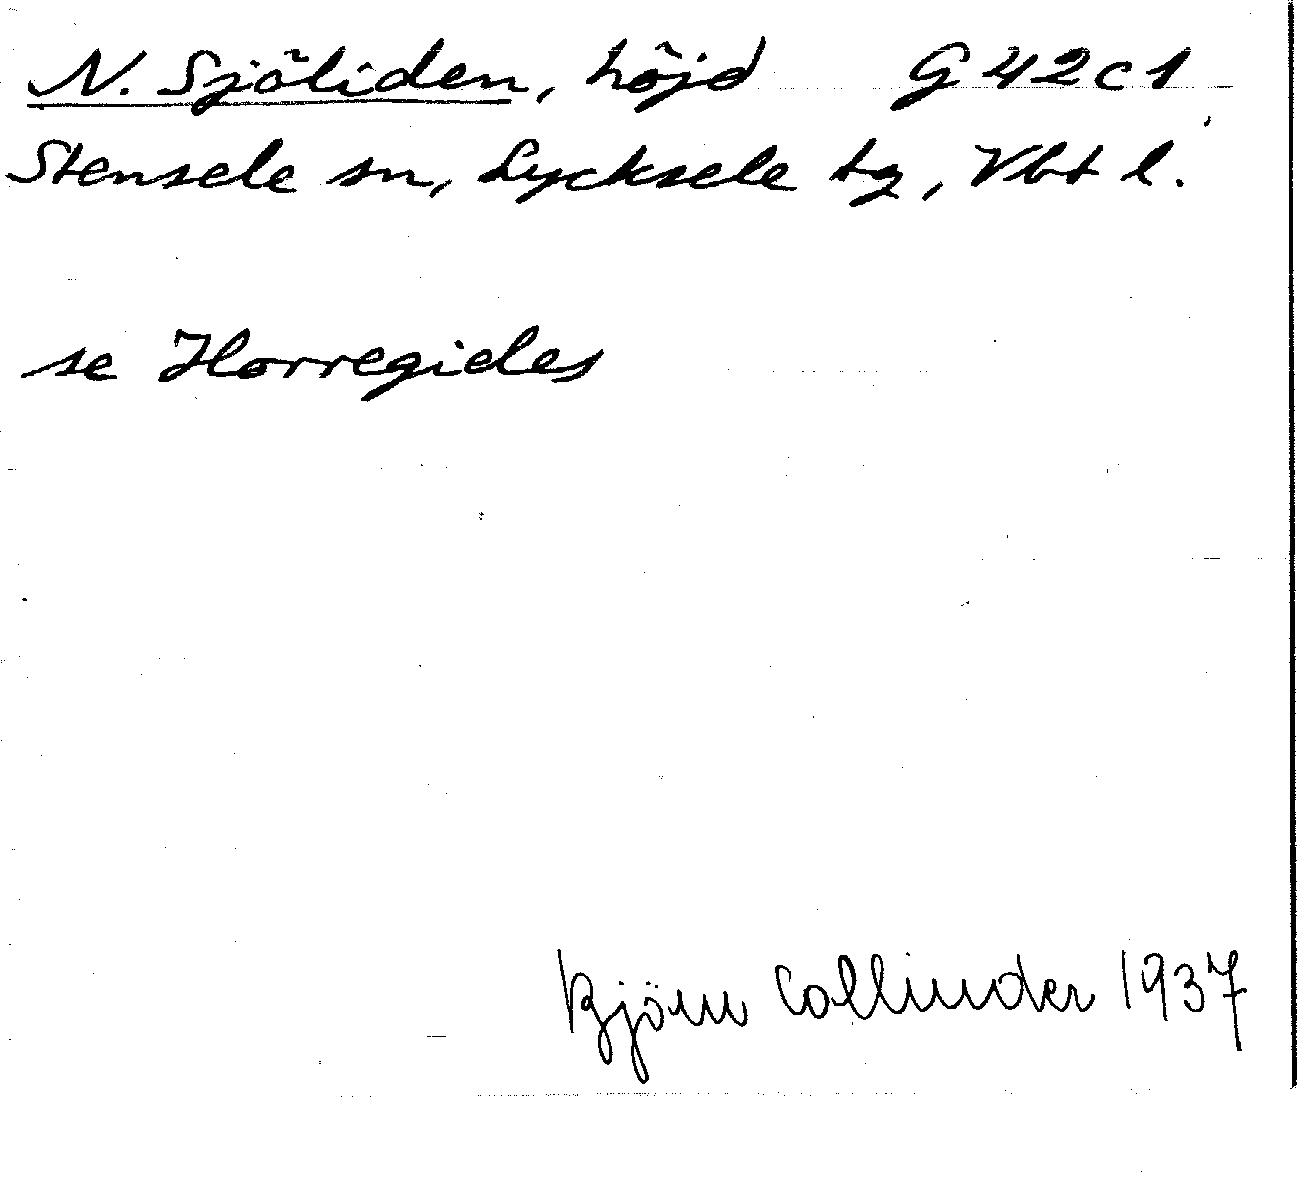 N. Sjöliden, höjd G 42 c 1
Stensele sn, Lycksele tg, Vbt l.
se Horregieles
Björn Collinder 1937